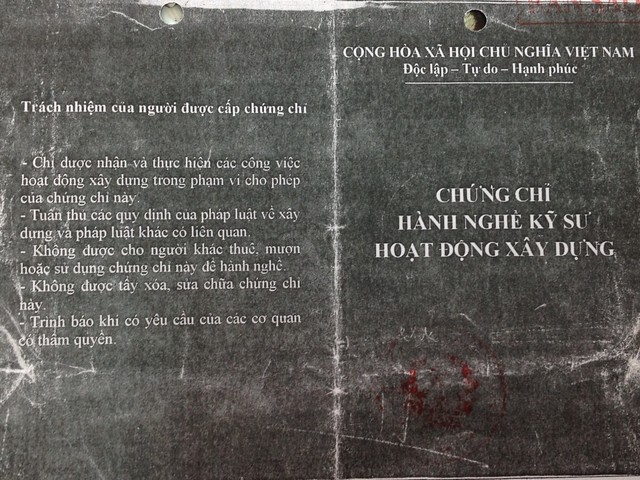 Trách nhiệm của người được cấp chứng chỉ
- Chỉ được nhận và thực hiện các công việc
hoạt động xây dựng trong phạm vi cho phép
của chứng chỉ này.
- Tuân thủ các quy định của pháp luật về xây
dựng và pháp luật khác có liên quan.
- Không được cho người khác thuê, mượn
hoặc sử dụng chứng chỉ này để hành nghề.
- Không được tẩy xóa, sửa chữa chứng chỉ
này.
- Trình báo khi có yêu cầu của các cơ quan
có thẩm quyền.
CỘNG HÒA XÃ HỘI CHỦ NGHĨA VIỆT NAM
Độc lập – Tự do – Hạnh phúc
CHỨNG CHỈ
HÀNH NGHỀ KỸ SƯ
HOẠT ĐỘNG XÂY DỰNG